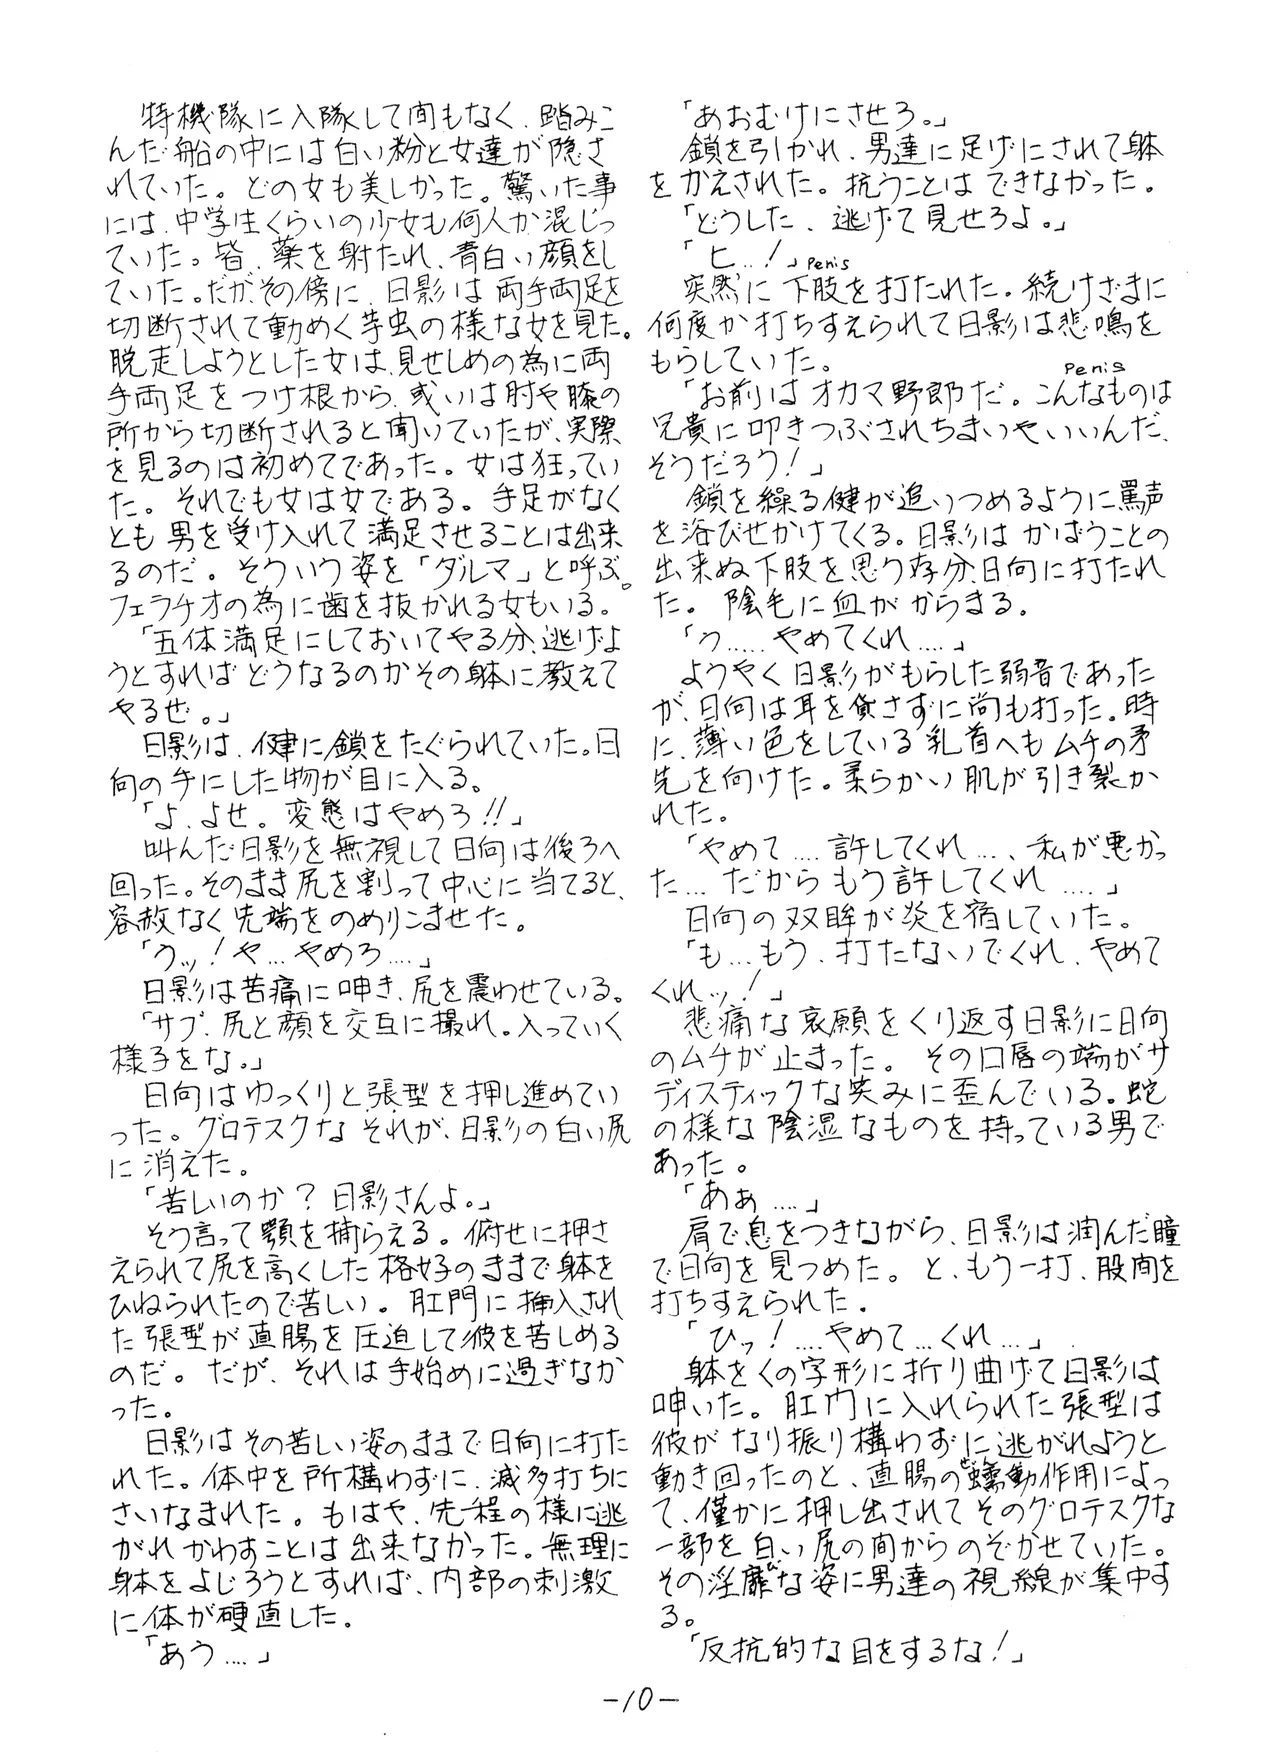 特機隊に入隊して間もなく、踏みこ
んだ船の中には白い粉と女達が隠さ
れていた。どの女も美しかった。驚いた事
には、中学生くらいの少女も何人か混じっ
ていた。皆、薬を射たれ、青白い顔をし
ていた。だが、その傍に、日影は両手両足を
切断されて動めく芋虫の様な女を見た。
脱走しようとした女は、見せしめの為に両
手両足をつけ根から、或いは肘や膝の
所から切断されると聞いていたが、実際
を見るのは初めてであった。女は狂ってい
た。それでも女は女である。手足がなく
とも男を受け入れて満足させることは出来
るのだ。そういう姿を「ダルマ」と呼ぶ。
フェラチオの為に歯を抜かれる女もいる。
「五体満足にしておいてやる分、逃げよ
うとすればどうなるのかその躰に教えて
やるぜ。」
日影は、健に鎖をたぐられていた。日
向の手にした物が目に入る。
「よ、よせ。変態はやめろ!!」
叫んだ日影を無視して日向は後ろへ
回った。そのまま尻を割って中心に当てると、
容赦なく先端をのめりこませた。
「うッ!や…やめろ…。」
日影は苦痛に呻き、尻を震わせている。
「サブ、尻と顔を交互に撮れ。入っていく
様子をな。」
日向はゆっくりと張型を押し進めてい
った。グロテスクなそれが、日影の白い尻
に消えた。
「苦しいのか?日影さんよ。」
そう言って顎を捕らえる。俯せに押さ
えられて尻を高くした格好のままで躰を
ひねられたので苦しい。肛門に挿入され
た張型が直腸を圧迫して彼を苦しめる
のだ。だが、それは手始めに過ぎなか
った。
日影はその苦しい姿のままで日向に打た
れた。体中を所構わずに、滅多打ちに
さいなまれた。もはや、先程の様に逃
がれかわすことは出来なかった。無理に
身体をよじろうとすれば、内部の刺激
に体が硬直した。
「あう…」
「あおむけにさせろ。」
鎖を引かれ、男達に足げにされて躰
をかえされた。抗うことはできなかった。
「どうした、逃げて見せろよ。」
「ヒ…!」
penis
突然に下肢を打たれた。続けざまに
何度か打ちすえられて日影は悲鳴を
もらしていた。
penis
「お前はオカマ野郎だ。こんなものは
兄貴に叩きつぶされちまいやいいんだ、
そうだろう!」
鎖を繰る健が追いつめるように罵声
を浴びせかけてくる。日影はかばうことの
出来ぬ下肢を思う存分、日向に打たれ
た。陰毛に血がからまる。
「う……やめてくれ…」
ようやく日影がもらした弱音であった
が、日向は耳を貸さずに尚も打った。時
に、薄い色をしている乳首へもムチの矛
先を向けた。柔らかい肌が引き裂か
れた。
「やめて…許してくれ…、私が悪かっ
た…だからもう許してくれ…」
日向の双眸が炎を宿していた。
「も…もう、打たないでくれ、やめて
くれッ!」
悲痛な哀願をくり返す日影に日向
のムチが止まった。その口唇の端がサ
ディスティックな笑みに歪んでいる。蛇
の様な陰湿なものを持っている男で
あった。
「ああ…」
肩で息をつきながら、日影は潤んだ瞳
で日向を見つめた。と、もう一打、股間を
打ちすえられた。
「ひッ!…やめて…くれ…」
躰をくの字形に折り曲げて日影は
呻いた。肛門に入れられた張型は
彼がなり振り構わずに逃がれようと
動き回ったのと、直腸の蠕動作用によっ
て、僅かに押し出されてそのグロテスクな
一部を白い尻の間からのぞかせていた。
その淫靡な姿に男達の視線が集中す
る。
「反抗的な目をするな!」
-10-